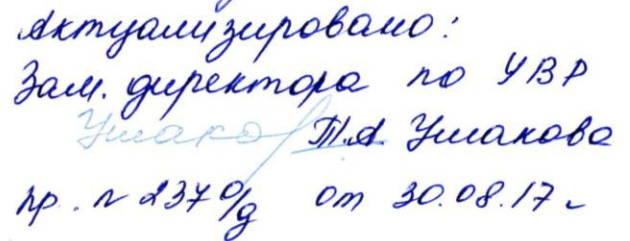 Актуализировано:
Зам. директора по УВР
Ушаков Т.А Ушакова
пр. № 237 о/д от 30.08.17 г